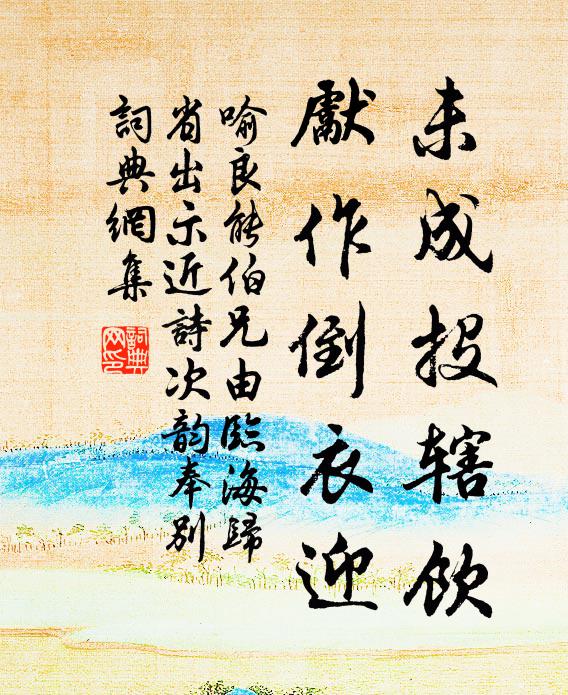 未成投辖飲
獻作倒衣迎
喻良能伯兄由臨海歸
省出示近詩次韵奉别
詞典網集
詞典
网印